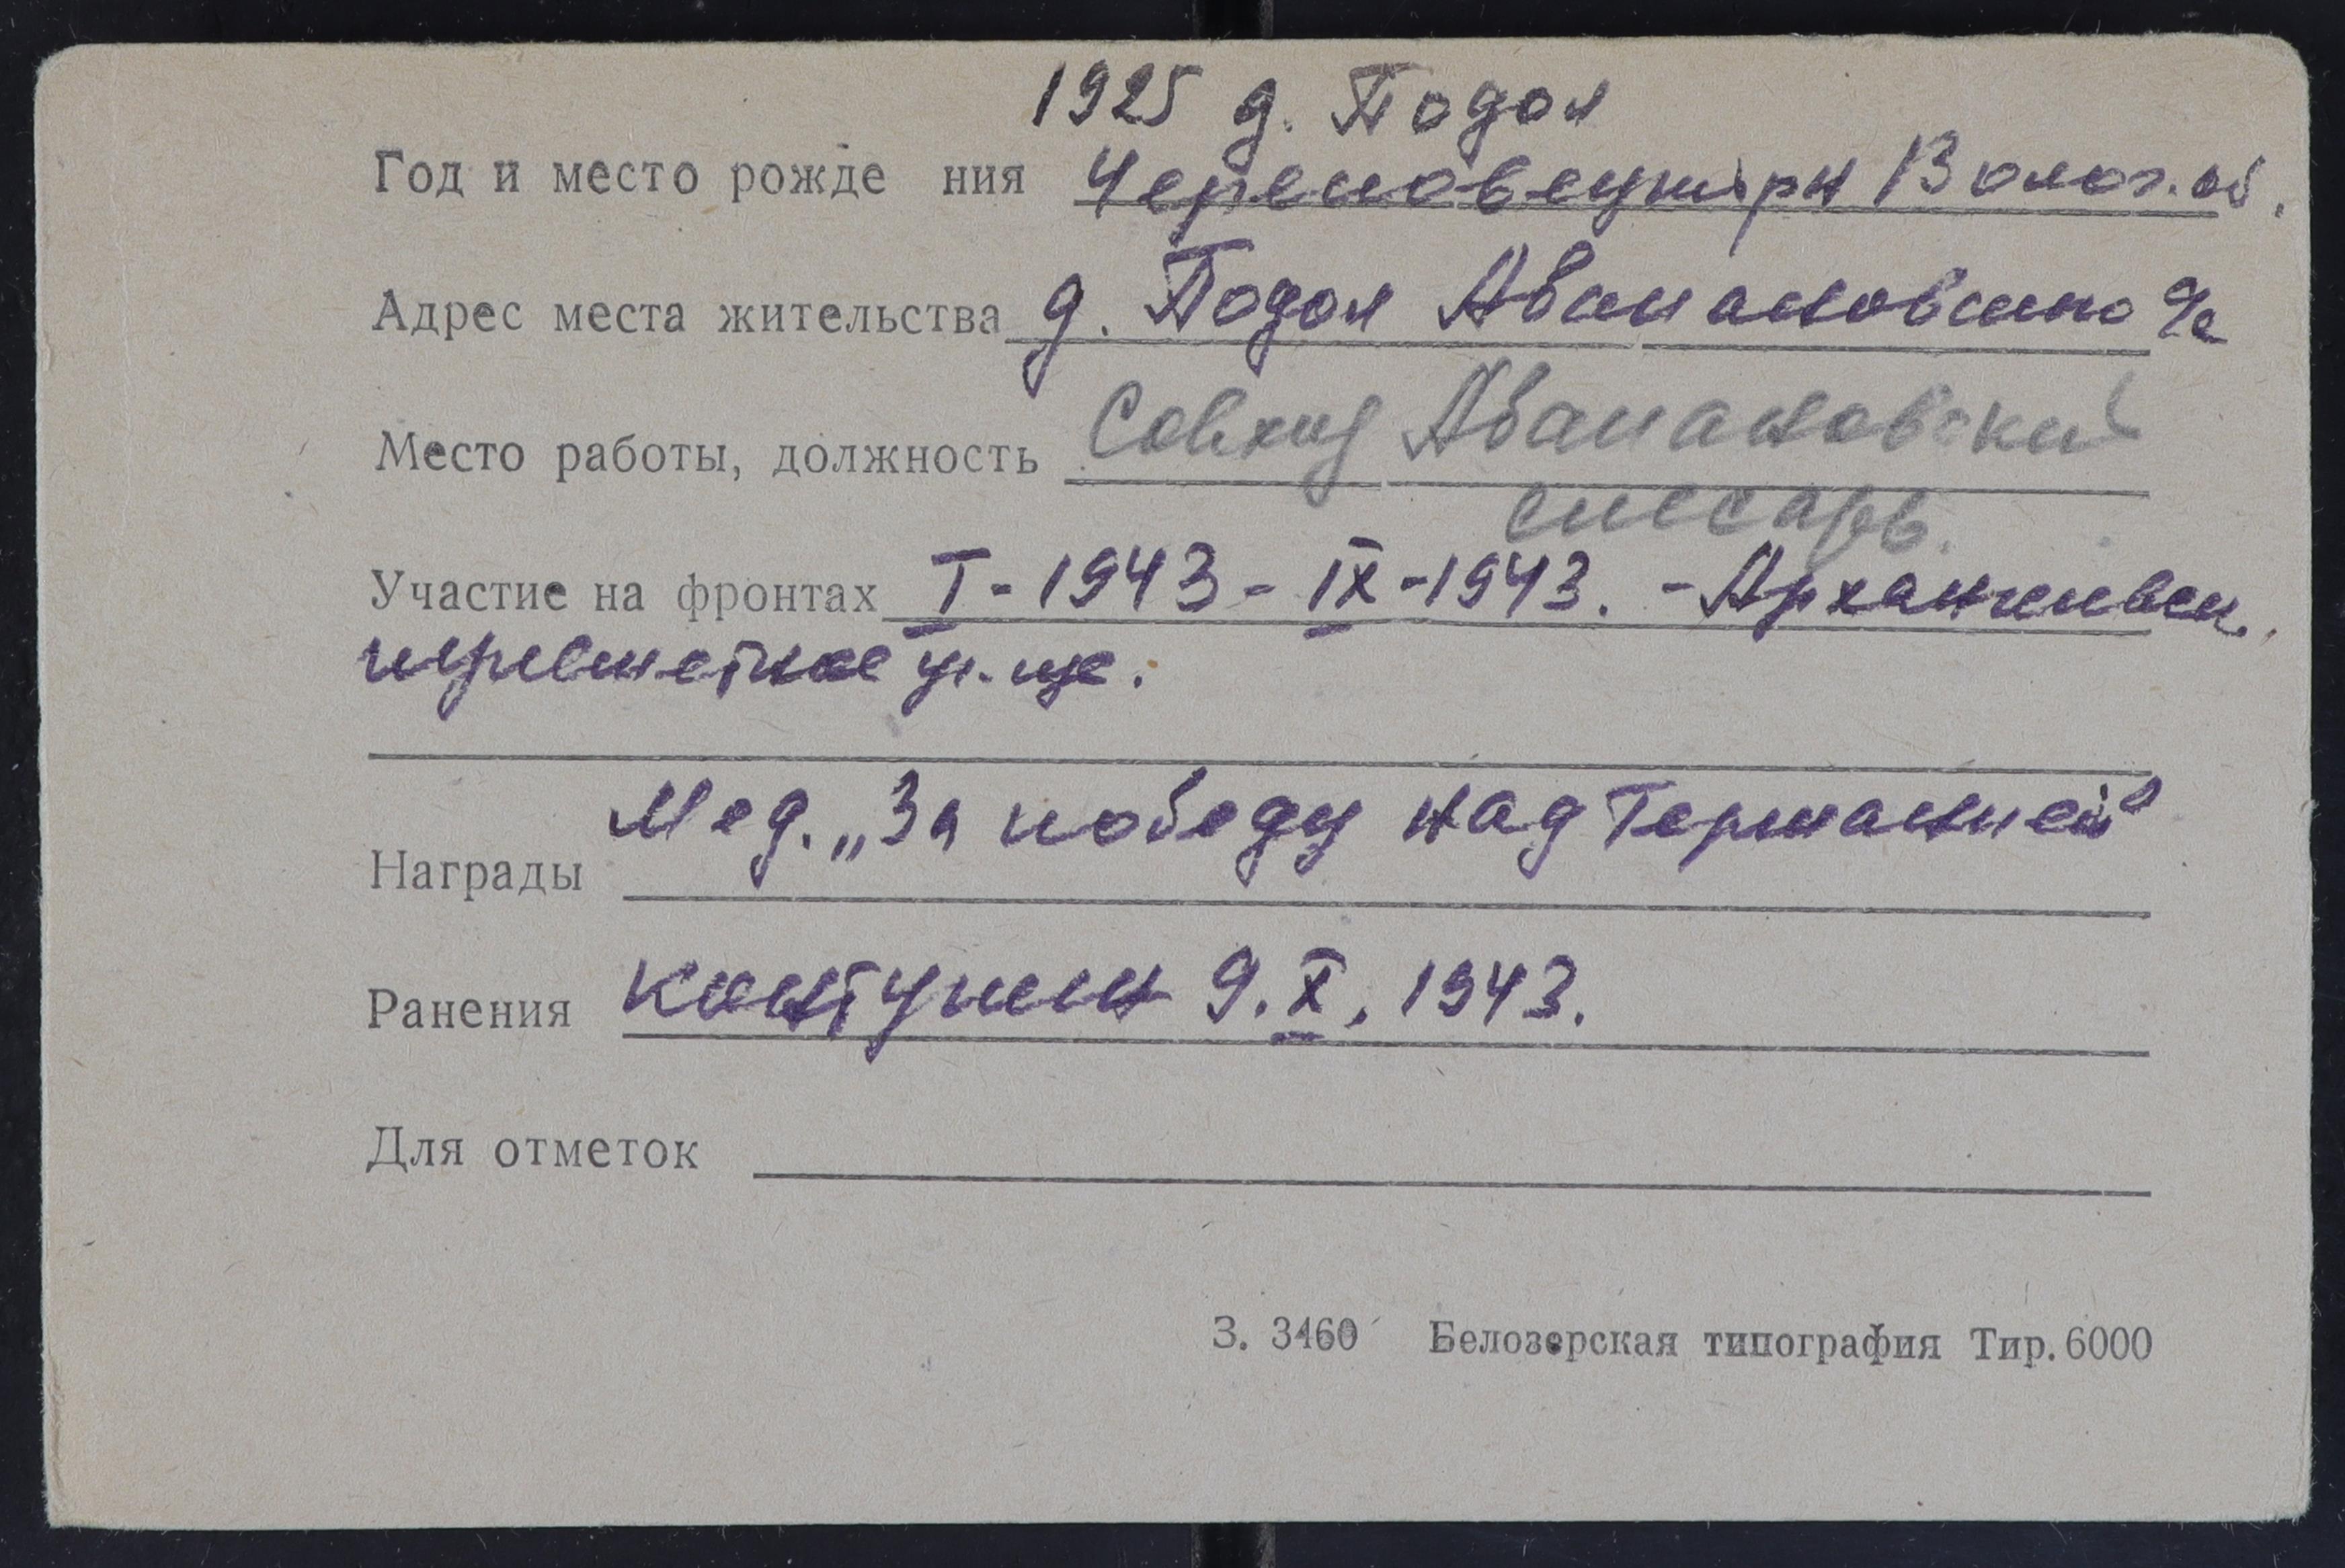 1925 д. Подол
Год и место рожде ния Череповецк. рн Волог. об.
Адрес места жительства д. Подол Абакановского с/с
Место работы, должность Совхоз Абакановский
слесарь.
Участие на фронтах I - 1943 - IX - 1943. - Архангельск.
пулеметное уч-ще.
Награды Мед. „За победу над Германией"
Ранения контузия 9. X. 1943.
Для отметок
З. 3460 Белозерская типография Тир. 6000